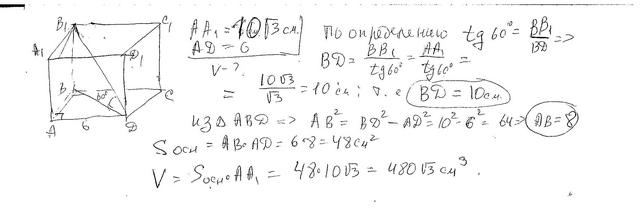 B₁ C₁
A₁ D₁
B 60° C
A 6 D
AA₁ = 10√3 см.
AD = 6
V - ?
По определению tg 60° = BB₁/BD =>
BD = BB₁/tg60° = AA₁/tg60° =
= 10√3/√3 = 10 см; т.е BD = 10см.
из Δ ABD => AB² = BD² - AD² = 10² - 6² = 64 => AB = 8
Sосн = AB·AD = 6·8 = 48см²
V = Sосн·AA₁ = 48·10√3 = 480√3 см³.